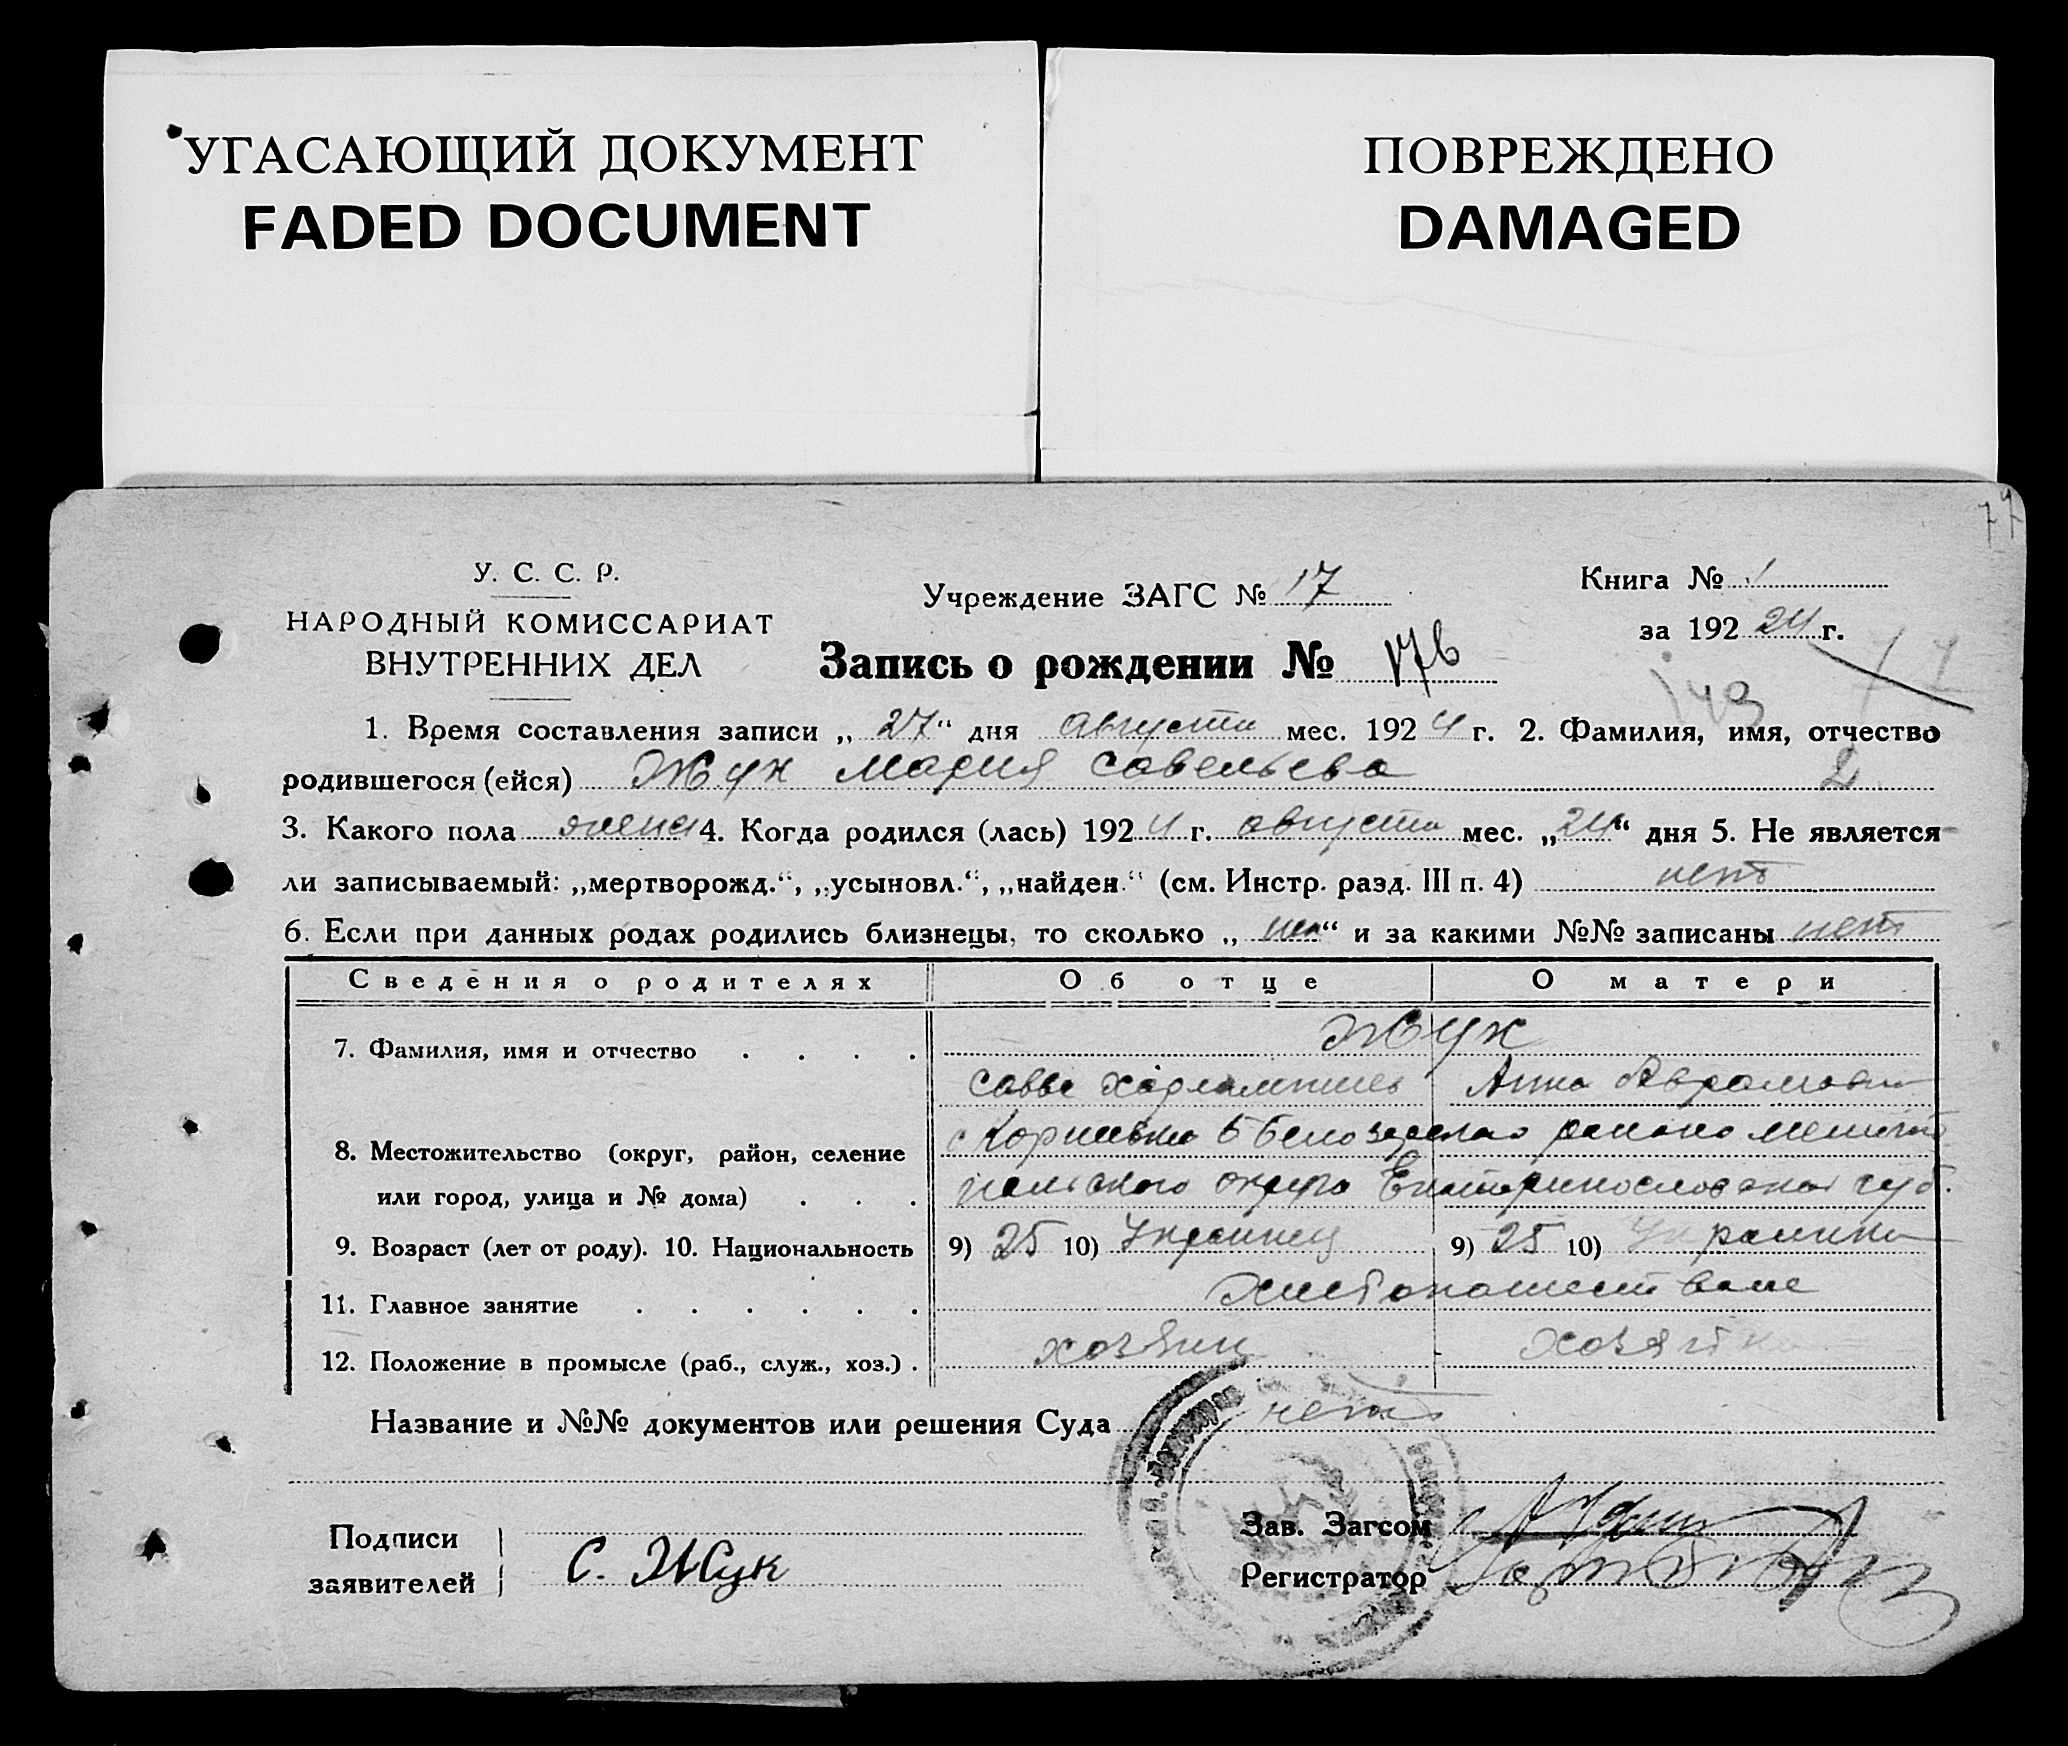 УГАСАЮЩИЙ ДОКУМЕНТ
FADED DOCUMENT
ПОВРЕЖДЕНО
DAMAGED
77
У. С. С. Р.
НАРОДНЫЙ КОМИССАРИАТ
ВНУТРЕННИХ ДЕЛ
Учреждение ЗАГС № 17
Книга № 1
за 192 24 г.
Запись о рождении № 176
143
1. Время составления записи „ 27 “ дня августа мес. 192 4 г. 2. Фамилия, имя, отчество
родившегося (ейся) Жук Мария Савельева 2
3. Какого пола женс 4. Когда родился (лась) 192 4 г. августа мес. „ 24 “ дня 5. Не является
ли записываемый: „мертворожд.“, „усыновл.“, „найден.“ (см. Инстр. разд. III п. 4) нет
6. Если при данных родах родились близнецы, то сколько „ нет “ и за какими №№ записаны нет
Сведения о родителях Об отце О матери
7. Фамилия, имя и отчество Жук
Савва Харлампиев Анна
8. Местожительство (округ, район, селение района
или город, улица и № дома) польского округа Екатеринославской губ.
9. Возраст (лет от роду). 10. Национальность 9) 25 10) Украинец 9) 25 10) Украинка
11. Главное занятие Хлебопашество
12. Положение в промысле (раб., служ., хоз.) хозяин хозяйка
Название и №№ документов или решения Суда нет
Подписи
заявителей С. Жук
Зав. Загсом
Регистратор